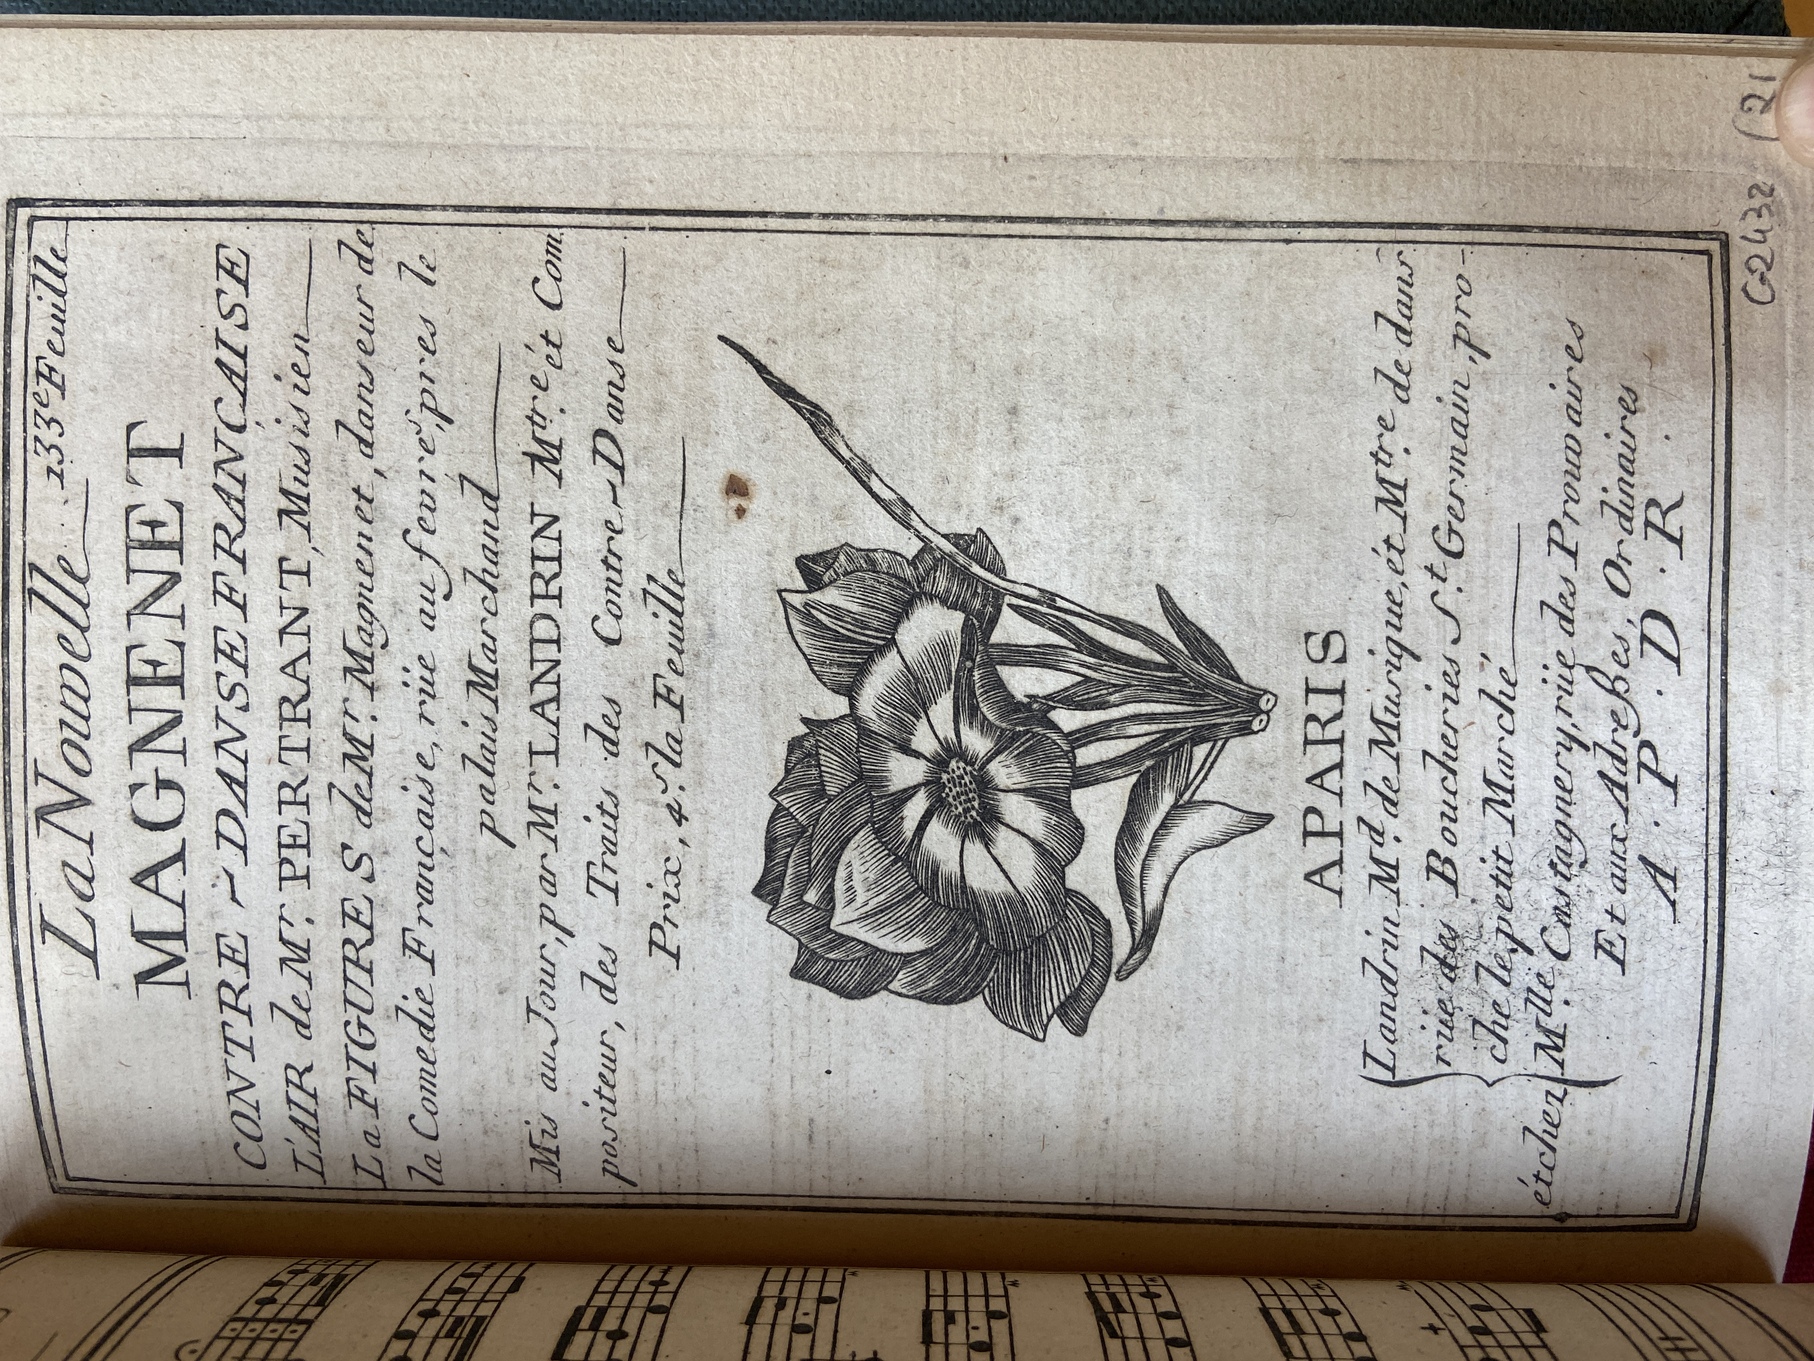 La Nouvelle 133e Feuille
MAGNENET
CONTRE ~ DANSE FRANÇAISE
L'AIR de Mr. PERTRANT, Musisien
La FIGURE S de Mr. Magnenet, danseur de
la Comedie Française, rüe au fevres, pres le
palais Marchand
Mis au Jour, par Mr. LANDRIN Mtre. ét Com
positeur, des Traits des Contre ~ Danse
Prix, 4.s la Feuille
A PARIS
Landrin Md. de Musique, ét Mtre. de dans
rüe des Boucheries St. Germain, pro-
che le petit Marché
étchez Mlle. Castagnery, rüe des Prouvaires
Et aux Adreßes, Ordinaires
A . P . D . R .
G2432 (21